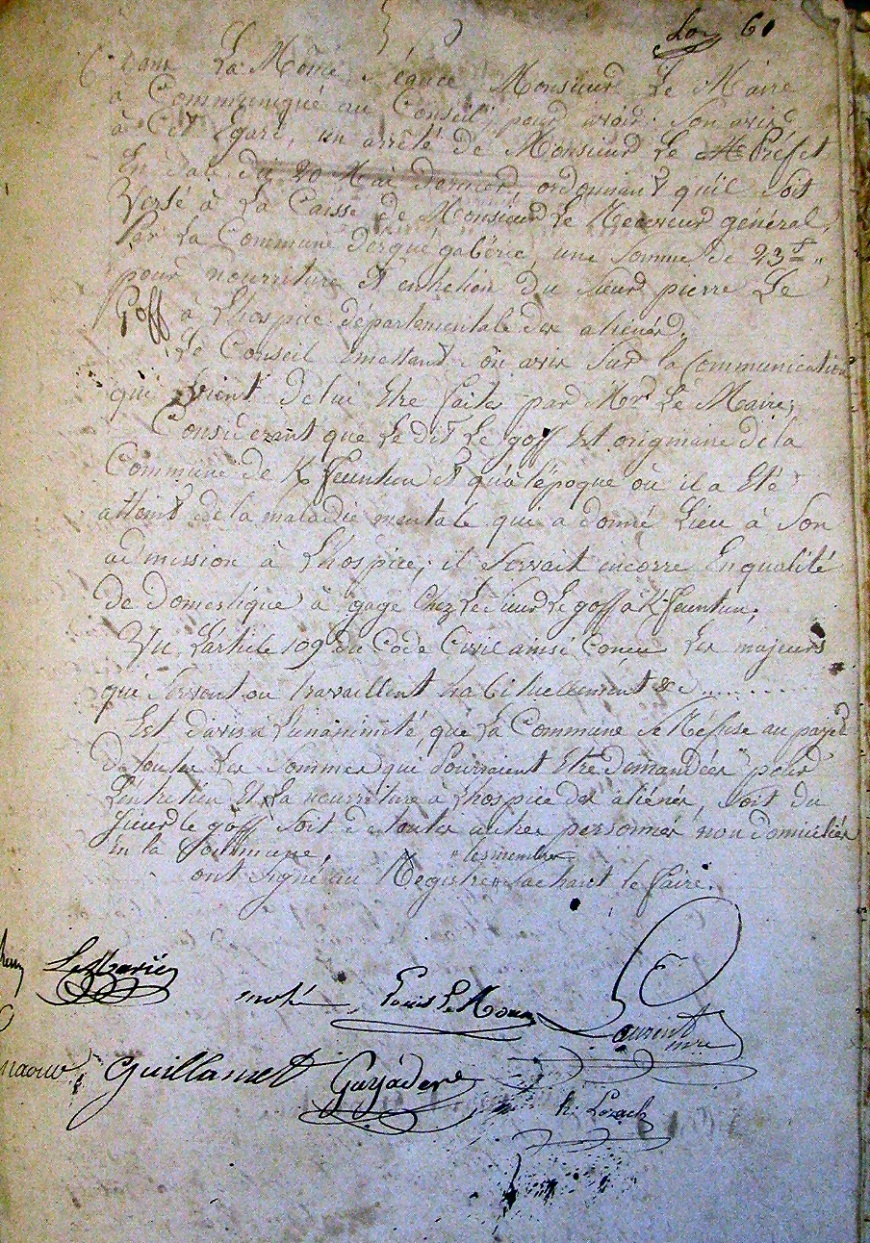 60
Dans La Même Séance Monsieur Le Maire
a Communiqué au Conseil, pour avoir Son avis
à Cet Egard, un arrêté de Monsieur Le Préfet
En date du 20 Mai dernier, ordonnant qu'il Soit
Versé à La Caisse de Monsieur Le Receveur général,
Par La Commune dergué gabéric, une Somme de 23 f
pour nourriture Et entretien du Sieur pierre Le
Goff à L'hospice départementale des aliénés,
Le Conseil émettant Son avis Sur la Communication
qui Vient de lui Etre faites par Mr Le Maire,
Considérant que Le dit Le goff Est originaire de la
Commune de K/feunteun Et qu'à l'époque où il a Eté
atteint de la maladie mentale qui a donné Lieu à Son
admission à L'hospice, il Servait encorre En qualité
de Domestique à gage Chez Le Sieur Le goff à K/feunteun,
Vu L'article 109 du Code Civil ainsi Concu Les majeurs
qui Servent ou travaillent habituellement &c .......
Est d'avis à L'unanimité, que La Commune Se Réfuse au payer
de toutes Les Sommes qui Pourraient Etre demandées pour
L'entretien Et La nourriture à L'hospice des aliénés, Soit du
Sieur le goff Soit de toutes autres personnes non domiciliés
En la Commune,
les membres
ont Signé au Registre Sachant le faire.
Laurent
mre
Guillamet Gayadere
h. Lozach